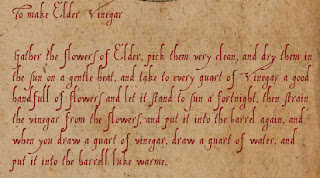 To make Elder Vinegar
Gather the flowers of Elder, pick them very clean, and dry them in
the sun on a gentle heat, and take to every quart of Vinegar a good
handfull of flowers and let it stand to sun a fortnight, then strain
the vinegar from the flowers, and put it into the barrel again, and
when you draw a quart of vinegar, draw a quart of water, and
put it into the barrell luke warme.